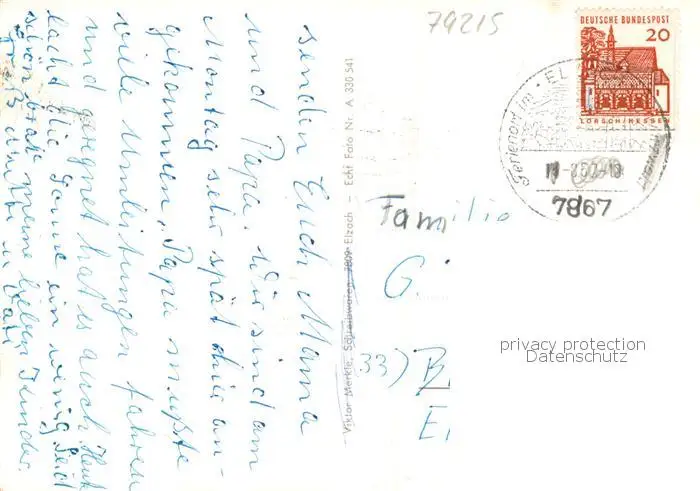 79215
DEUTSCHE BUNDESPOST
20
LORSCH/HESSEN
Ferienort im
7867
senden Euch Mama
und Papa. Wir sind am
Montag sehr spät hier an-
gekommen, Papa mußte
viele Umleitungen fahren
und geregnet hat es auch. Heute
lacht die Sonne ein wenig. Seid
schön brav meine lieben Kinder.
Viktor Merkle, Schreibwaren, 7809 Elzach — Echt Foto Nr. A 330 541
Familie
G.
(33) B
E
privacy protection
Datenschutz